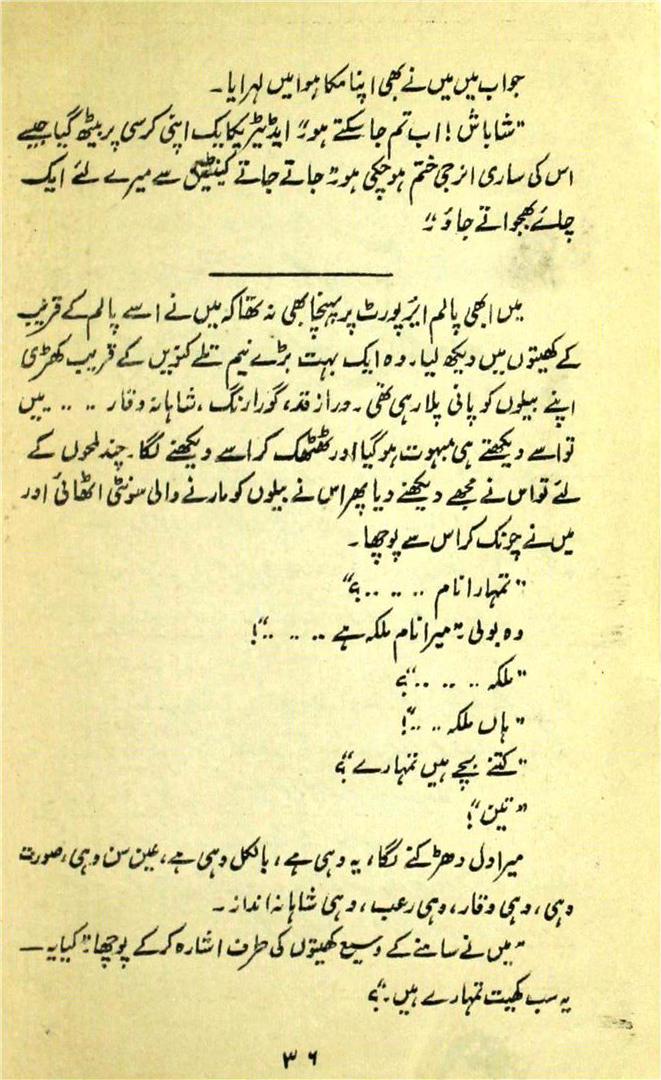 جواب میں میں نے بھی اپنا مکا ہوا میں لہرایا۔
"شاباش! اب تم جا سکتے ہو" ایڈیٹر یکایک اپنی کرسی پر بیٹھ گیا جیسے
اس کی ساری انرجی ختم ہو چکی ہو" جاتے جاتے کینٹین سے میرے لئے ایک
چائے بھجواتے جاؤ"
میں ابھی پالم ایئرپورٹ پر پہنچا بھی نہ تھا کہ میں نے اسے پالم کے قریب
کے کھیتوں میں دیکھ لیا۔ وہ ایک بہت بڑے نیم تلے کنویں کے قریب کھڑی
اپنے بیلوں کو پانی پلا رہی تھی۔ دراز قد، گورا رنگ، شاہانہ وقار .. .. میں
تو اسے دیکھتے ہی مبہوت ہو گیا اور ٹھٹھک کر اسے دیکھنے لگا۔ چند لمحوں کے
لئے تو اس نے مجھے دیکھنے دیا پھر اس نے بیلوں کو مارنے والی سونٹی اٹھائی اور
میں نے چونک کر اس سے پوچھا۔
"تمہارا نام .. .. ..؟"
وہ بولی "میرا نام ملکہ ہے .. .. ..!"
"ملکہ .. .. ..؟"
"ہاں ملکہ .. ..!"
"کتنے بچے ہیں تمہارے؟"
"تین!"
میرا دل دھڑکنے لگا، یہ وہی ہے، بالکل وہی ہے، عین سن وہی، صورت
وہی، وہی وقار، وہی رعب، وہی شاہانہ انداز۔
"میں نے سامنے کے وسیع کھیتوں کی طرف اشارہ کر کے پوچھا" کیا یہ —
یہ سب کھیت تمہارے ہیں۔؟"
۳۶